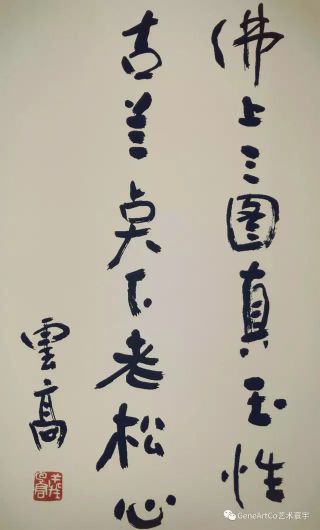 佛上三图真玉性
古兰贞下老松心
雲高
GeneArtCo艺术寰宇